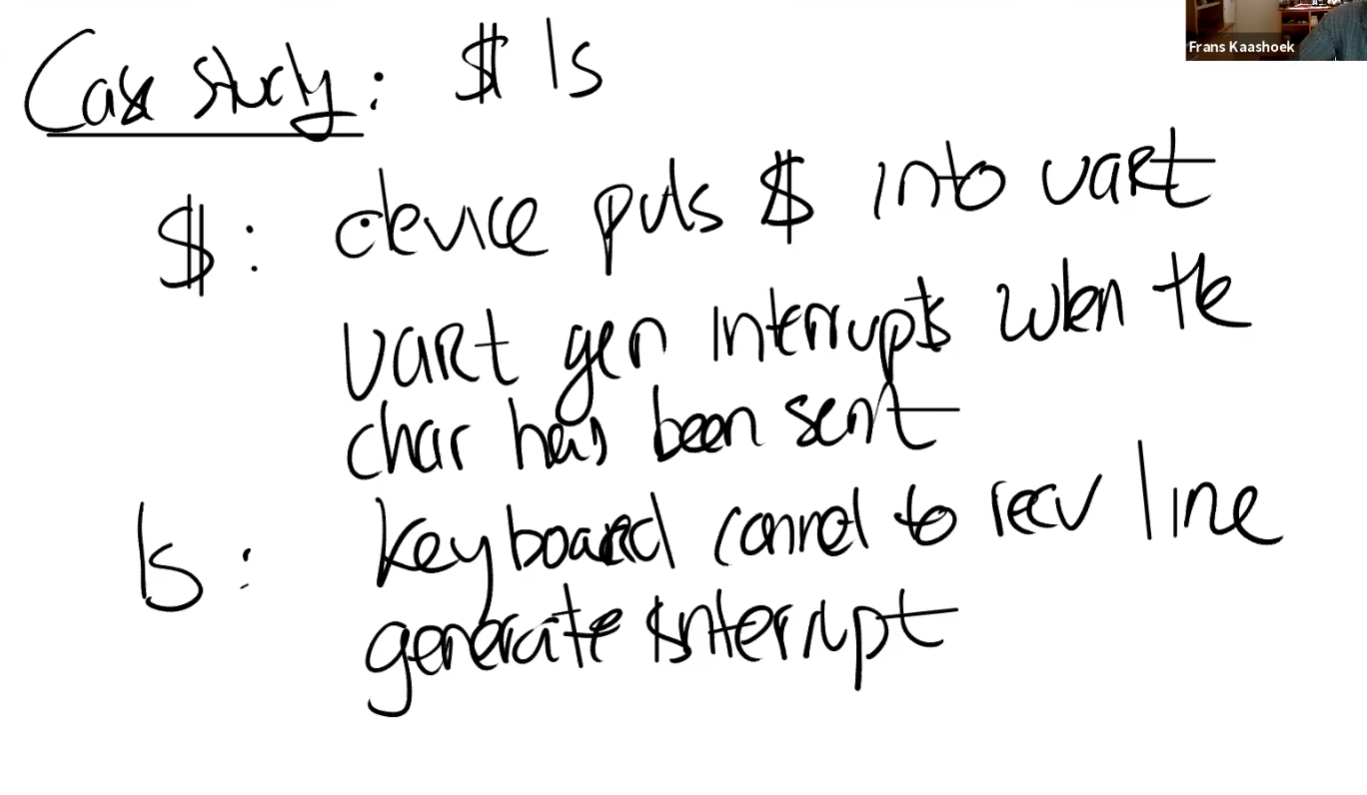 Case study: $ ls
Frans Kaashoek
$: device puts $ into uart
uart gen interrupts when the
char has been sent
ls: keyboard connect to recv line
generate interrupt